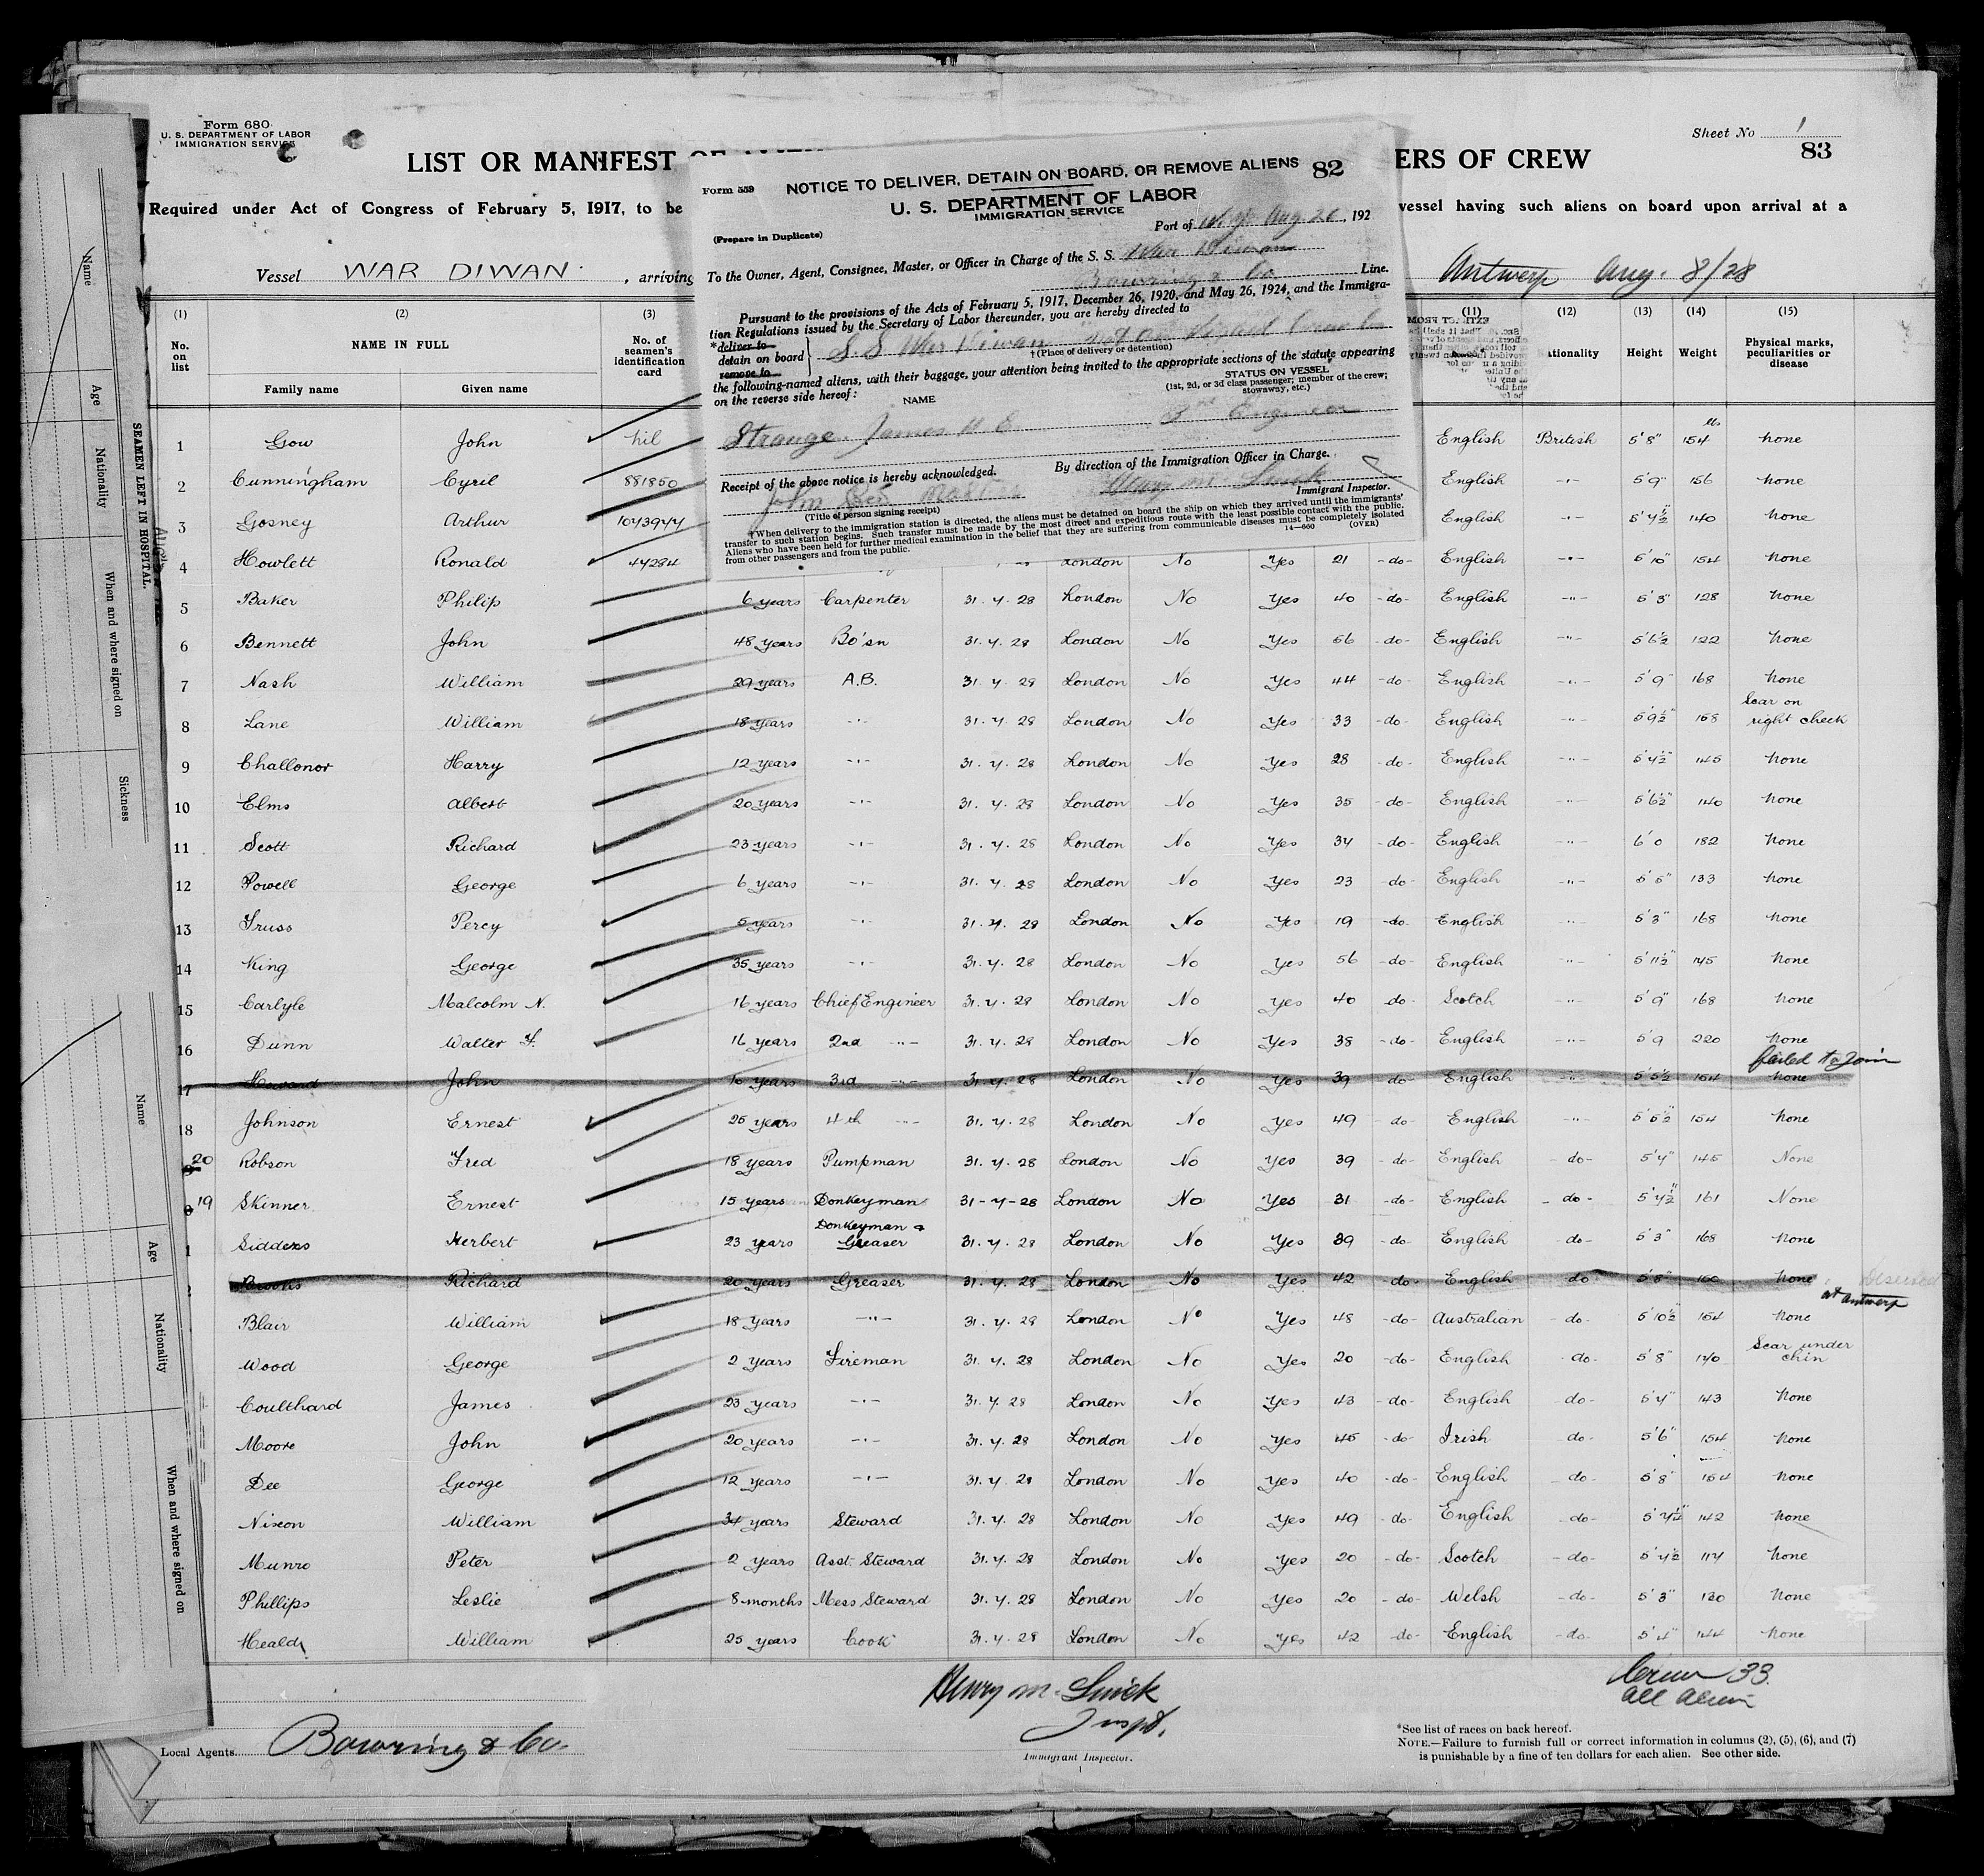 Form 680
U. S. DEPARTMENT OF LABOR
IMMIGRATION SERVICE
Sheet No 1
83
LIST OR MANIFEST OF ERS OF CREW
Required under Act of Congress of February 5, 1917, to be vessel having such aliens on board upon arrival at a
Vessel WAR DIWAN , arriving Antwerp Aug. 8/28
Form 559
NOTICE TO DELIVER, DETAIN ON BOARD, OR REMOVE ALIENS 82
U. S. DEPARTMENT OF LABOR
IMMIGRATION SERVICE
(Prepare in Duplicate)
Port of N.Y. Aug. 26, 192
To the Owner, Agent, Consignee, Master, or Officer in Charge of the S. S. War Diwan
Bowring & Co Line.
Pursuant to the provisions of the Acts of February 5, 1917, December 26, 1920, and May 26, 1924, and the Immigra-
tion Regulations issued by the Secretary of Labor thereunder, you are hereby directed to
*deliver to
detain on board
remove to
S S War Diwan
†(Place of delivery or detention)
the following-named aliens, with their baggage, your attention being invited to the appropriate sections of the statute appearing
on the reverse side hereof:
NAME
STATUS ON VESSEL
(1st, 2d, or 3d class passenger; member of the crew;
stowaway, etc.)
Strange, James H E 3rd Engineer
Receipt of the above notice is hereby acknowledged.
By direction of the Immigration Officer in Charge.
John Master
Henry M. Smick
(Title of person signing receipt)
Immigrant Inspector.
†When delivery to the immigration station is directed, the aliens must be detained on board the ship on which they arrived until the immigrants'
transfer to such station begins. Such transfer must be made by the most direct and expeditious route with the least possible contact with the public.
Aliens who have been held for further medical examination in the belief that they are suffering from communicable diseases must be completely isolated
from other passengers and from the public.
14—660 (OVER)
(1) (2) (3) (11) (12) (13) (14) (15)
No. on list
NAME IN FULL
Family name Given name
No. of seamen's identification card
Nationality Height Weight Physical marks, peculiarities or disease
1 Gow John nil English British 5'8" 154 lb none
2 Cunningham Cyril 881850 English -"- 5'9" 156 none
3 Gosney Arthur 1043944 English -"- 5'4½" 140 none
4 Howlett Ronald 44284 London No Yes 21 -do- English -"- 5'10" 154 none
5 Baker Philip 6 years Carpenter 31.7.28 London No Yes 40 -do- English -"- 5'3" 128 none
6 Bennett John 48 years Bo'sn 31.7.28 London No Yes 56 -do- English -"- 5'6½" 122 none
7 Nash William 29 years A.B. 31.7.28 London No Yes 44 -do- English -"- 5'9" 168 none
8 Lane William 18 years -"- 31.7.28 London No Yes 33 -do- English -"- 5'9½" 158 Scar on right cheek
9 Challonor Harry 12 years -"- 31.7.28 London No Yes 28 -do- English -"- 5'4½" 145 none
10 Elms Albert 20 years -"- 31.7.28 London No Yes 35 -do- English -"- 5'6½" 140 none
11 Scott Richard 23 years -"- 31.7.28 London No Yes 34 -do- English -"- 6'0 182 none
12 Powell George 6 years -"- 31.7.28 London No Yes 23 -do- English -"- 5'5" 133 none
13 Truss Percy 5 years -"- 31.7.28 London No Yes 19 -do- English -"- 5'3" 168 none
14 King George 35 years -"- 31.7.28 London No Yes 56 -do- English -"- 5'11½" 145 none
15 Carlyle Malcolm N. 16 years Chief Engineer 31.7.28 London No Yes 40 -do- Scotch -"- 5'9" 168 none
16 Dunn Walter F. 16 years 2nd -"- 31.7.28 London No Yes 38 -do- English -"- 5'9 220 none
17 John years 3rd -"- 31.7.28 London No Yes 39 -do- English -"- 5'5½ 154 none failed to join
18 Johnson Ernest 25 years 4th -"- 31.7.28 London No Yes 49 -do- English -"- 5'5½" 154 none
20 Robson Fred 18 years Pumpman 31.7.28 London No Yes 39 -do- English -do- 5'4" 145 None
19 Skinner Ernest 15 years Donkeyman 31-7-28 London No Yes 31 -do- English -do- 5'4½" 161 None
1 Siddens Herbert 23 years Donkeyman & Greaser 31.7.28 London No Yes 39 -do- English -do- 5'3" 168 none
Richard 20 years Greaser 31.7.28 London No Yes 42 -do- English do 5'8" 160 none Deserted at Antwerp
Blair William 18 years -"- 31.7.28 London No Yes 48 -do- Australian -do- 5'10½" 154 none
Wood George 2 years Fireman 31.7.28 London No Yes 20 -do- English -do- 5'8" 140 Scar under chin
Coulthard James 23 years -"- 31.7.28 London No Yes 43 -do- English -do- 5'4" 143 none
Moore John 20 years -"- 31.7.28 London No Yes 45 -do- Irish -do- 5'6" 154 none
Dee George 12 years -"- 31.7.28 London No Yes 40 -do- English -do- 5'8" 154 none
Nixon William 34 years Steward 31.7.28 London No Yes 49 -do- English -do- 5'4½" 142 none
Munro Peter 2 years Asst. Steward 31.7.28 London No Yes 20 -do- Scotch -do- 5'4½ 117 none
Phillips Leslie 8 months Mess Steward 31.7.28 London No Yes 20 -do- Welsh -do- 5'3" 130 none
Heald William 25 years Cook 31.7.28 London No Yes 42 -do- English -do- 5'4" 144 none
Henry M. Smick
Inspt.
Immigrant Inspector.
Crew 33.
All alien
Local Agents Bowring & Co.
*See list of races on back hereof.
NOTE.—Failure to furnish full or correct information in columns (2), (5), (6), and (7)
is punishable by a fine of ten dollars for each alien. See other side.
SEAMEN LEFT IN HOSPITAL.
Name
Age
Nationality
When and where signed on
Sickness
Name
Age
Nationality
When and where signed on